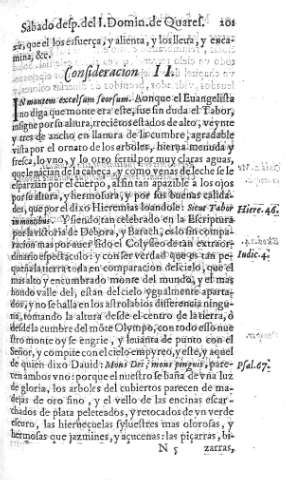 Sabado desp. del I. Domin. de Quares. 101
za, que el los esfuerça, y alienta, y los lleua, y enca-
mina, &c.
Consideracion II.
IN montem excelsum seorsum. Aonque el Euangelista
no diga que monte era este, fue sin duda el Tabor,
insigne por su altura, trecietos estados de alto, veynte
y tres de ancho en llanura de la cumbre, agradable
vista por el ornato de los arboles, hierua menuda y
fresca, lo vno, y lo otro fertil por muy claras aguas,
que le nacian de la cabeça, y como venas de leche se le
esparzian por el cuerpo, al fin tan apazible a los ojos
por su altura, y hermosura, y por sus buenas calida-
des, que por el dixo Hieremias loandole: Sicut Tabor
in montibus. Y siendo tan celebrado en la Escriptura Hiere. 46.
por la vitoria de Debora, y Barach, es lo sin compa-
racion mas por auer sido el Colyseo de tan extraor-
dinario espectaculo: y con ser verdad que es tan pe- Iudic. 4.
queña la tierra toda en comparacion del cielo, que el
mas alto y encumbrado monte del mundo, y el mas
hondo valle del, estan del cielo ygualmente aparta-
dos, y no se halla en los astrolabios diferencia ningu-
na, tomando la altura desde el centro de la tierra, ò
desde la cumbre del mõte Olympo, con todo esso nue
stro monte oy se engrie, y leuanta de punto con el
Señor, y compite con el cielo empyreo, y este, y aquel
de quien dixo Dauid: Mons Dei, mons pinguis, pare- Psal. 67.
cen ambos vno: porque el nuestro se baña de vna luz
de gloria, los arboles del cubiertos parecen de ma-
dejas de oro fino, y el vello de las encinas escar-
chados de plata peleteados, y retocados de yn verde
escuro, las hieruecuelas syluestres mas olorosas, y
hermosas que jazmines, y açucenas: las piçarras, bi-
N 5 zarras,